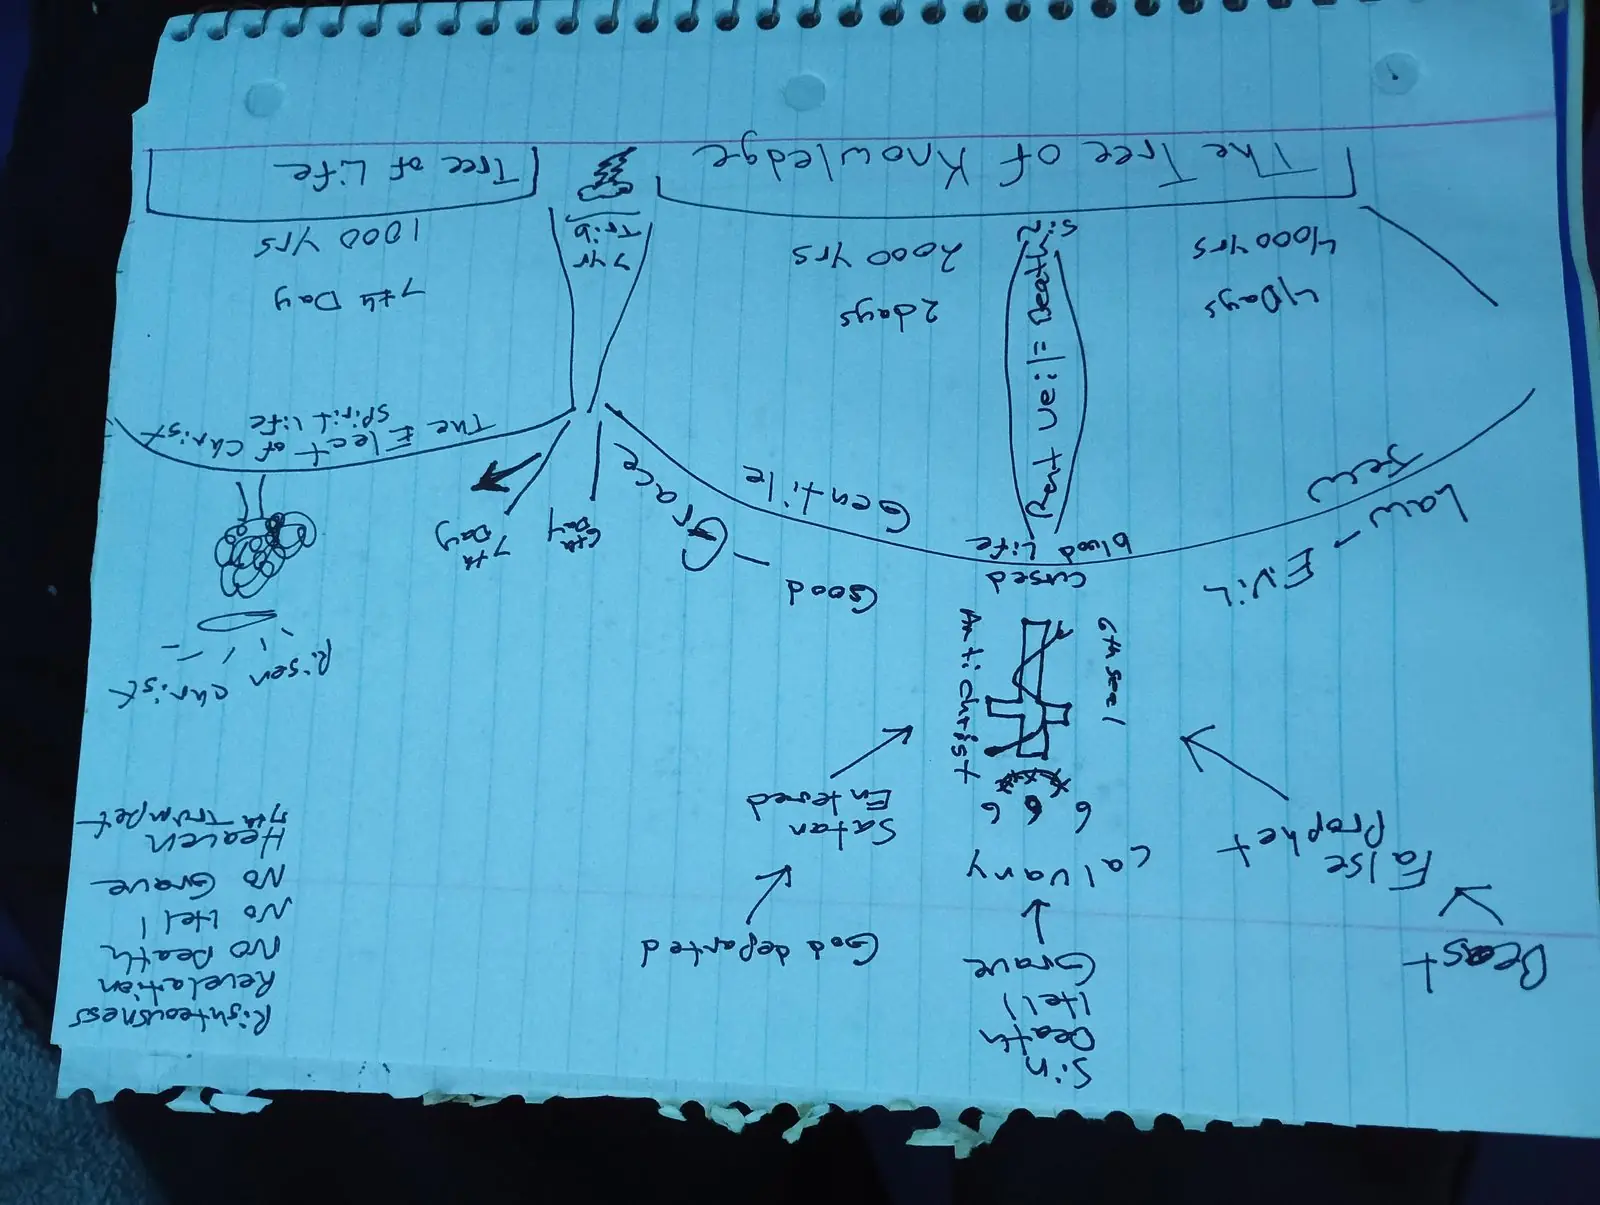 Sin
Death
Hell
Grave
Beast
False
Prophet
Calvary
6 6 6
God departed
Satan
Entered
6th seel
Anti Christ
Righteousness
Revelation
No Death
No Hell
No Grave
Heaven
7th Trumpet
Risen Christ
Law - Evil
Jew
cursed
blood Life
Good - Grace
Gentile
6th
Day
7th
Day
The Elect of Christ
Spirit Life
4 Days
4000 yrs
Rent veil = Death
Sin
2 days
2000 yrs
7 yr
Trib
7th Day
1000 yrs
The Tree of Knowledge
Tree of Life